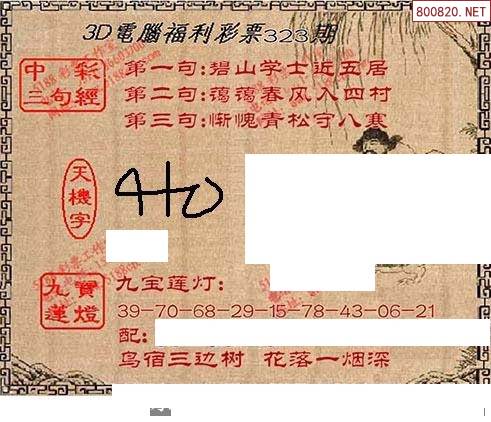 800820.NET
3D電腦福利彩票323期
中彩三句經
第一句:碧山学士近五居
第二句:蔼蔼春风入四村
第三句:惭愧青松守八寒
天機字
九寶蓮燈
九宝莲灯:
39-70-68-29-15-78-43-06-21
配:
鸟宿三边树 花落一烟深